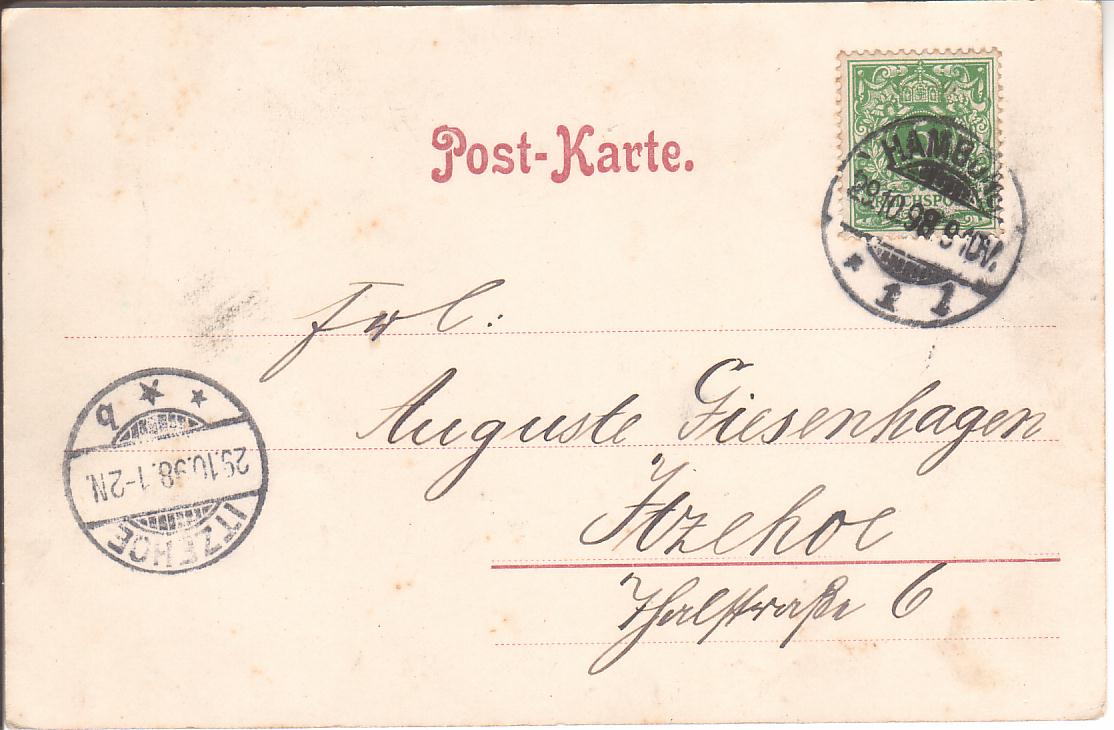 Post-Karte.
5
REICHSPOST
HAMBURG
29.10.98 9-10V.
* 1 1
Frl:
Auguste Giesenhagen
Itzehoe
Thalstraße 6
ITZEHOE
29.10.98.1-2N.